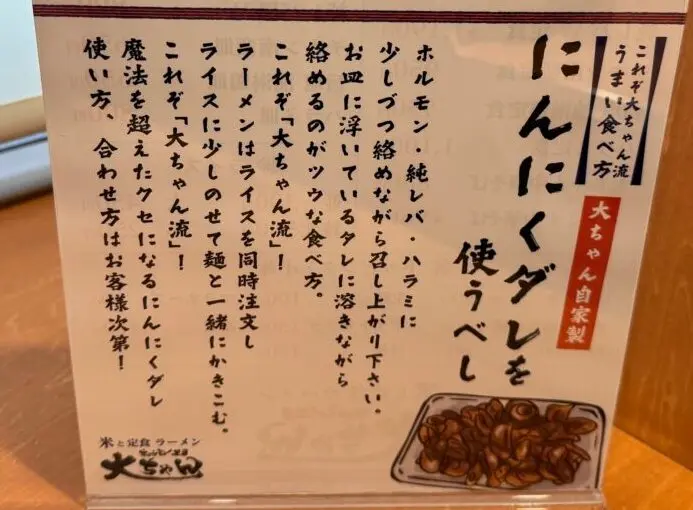 これぞ大ちゃん流
うまい食べ方
大ちゃん自家製
にんにくダレを
使うべし
ホルモン・純レバ・ハラミに
少しづつ絡めながら召し上がり下さい。
お皿に浮いているタレに溶きながら
絡めるのがツウな食べ方。
これぞ「大ちゃん流」！
ラーメンはライスを同時注文し
ライスに少しのせて麺と一緒にかきこむ。
これぞ「大ちゃん流」！
魔法を超えたクセになるにんにくダレ
使い方、合わせ方はお客様次第！
米と定食 ラーメン
大ちゃん